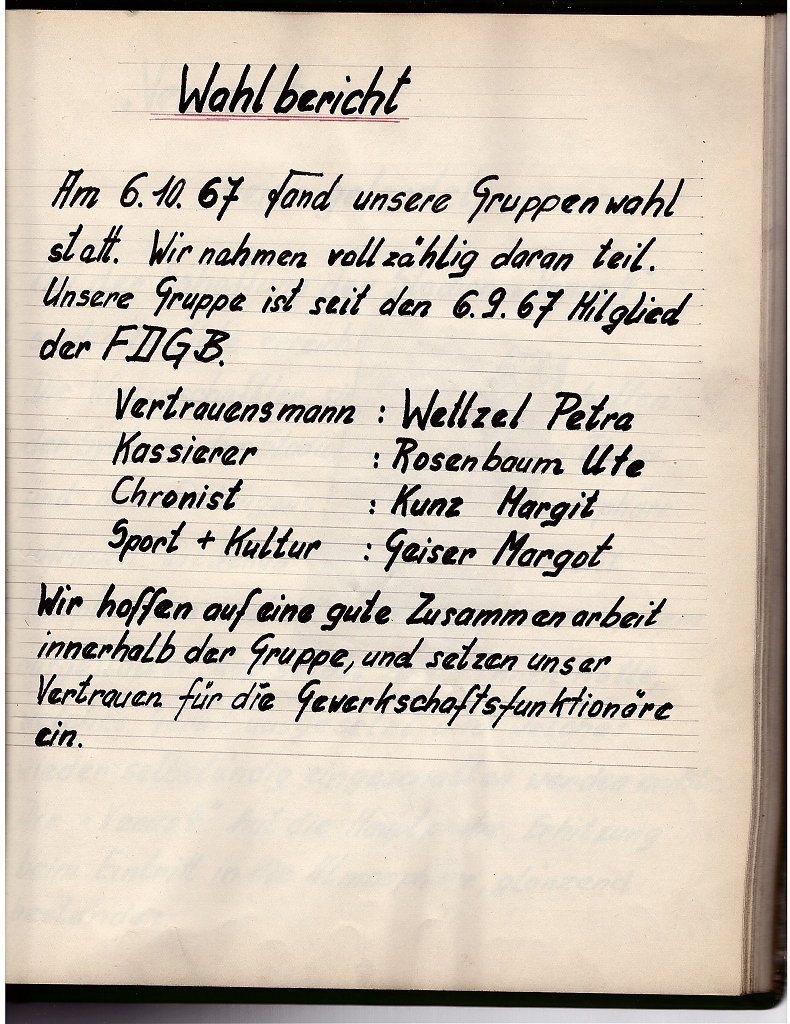 Wahlbericht
Am 6.10.67 fand unsere Gruppenwahl
statt. Wir nahmen vollzählig daran teil.
Unsere Gruppe ist seit den 6.9.67 Mitglied
der FDGB.
Vertrauensmann : Weltzel Petra
Kassierer : Rosenbaum Ute
Chronist : Kunz Margit
Sport + Kultur : Geiser Margot
Wir hoffen auf eine gute Zusammenarbeit
innerhalb der Gruppe, und setzen unser
Vertrauen für die Gewerkschaftsfunktionäre
ein.